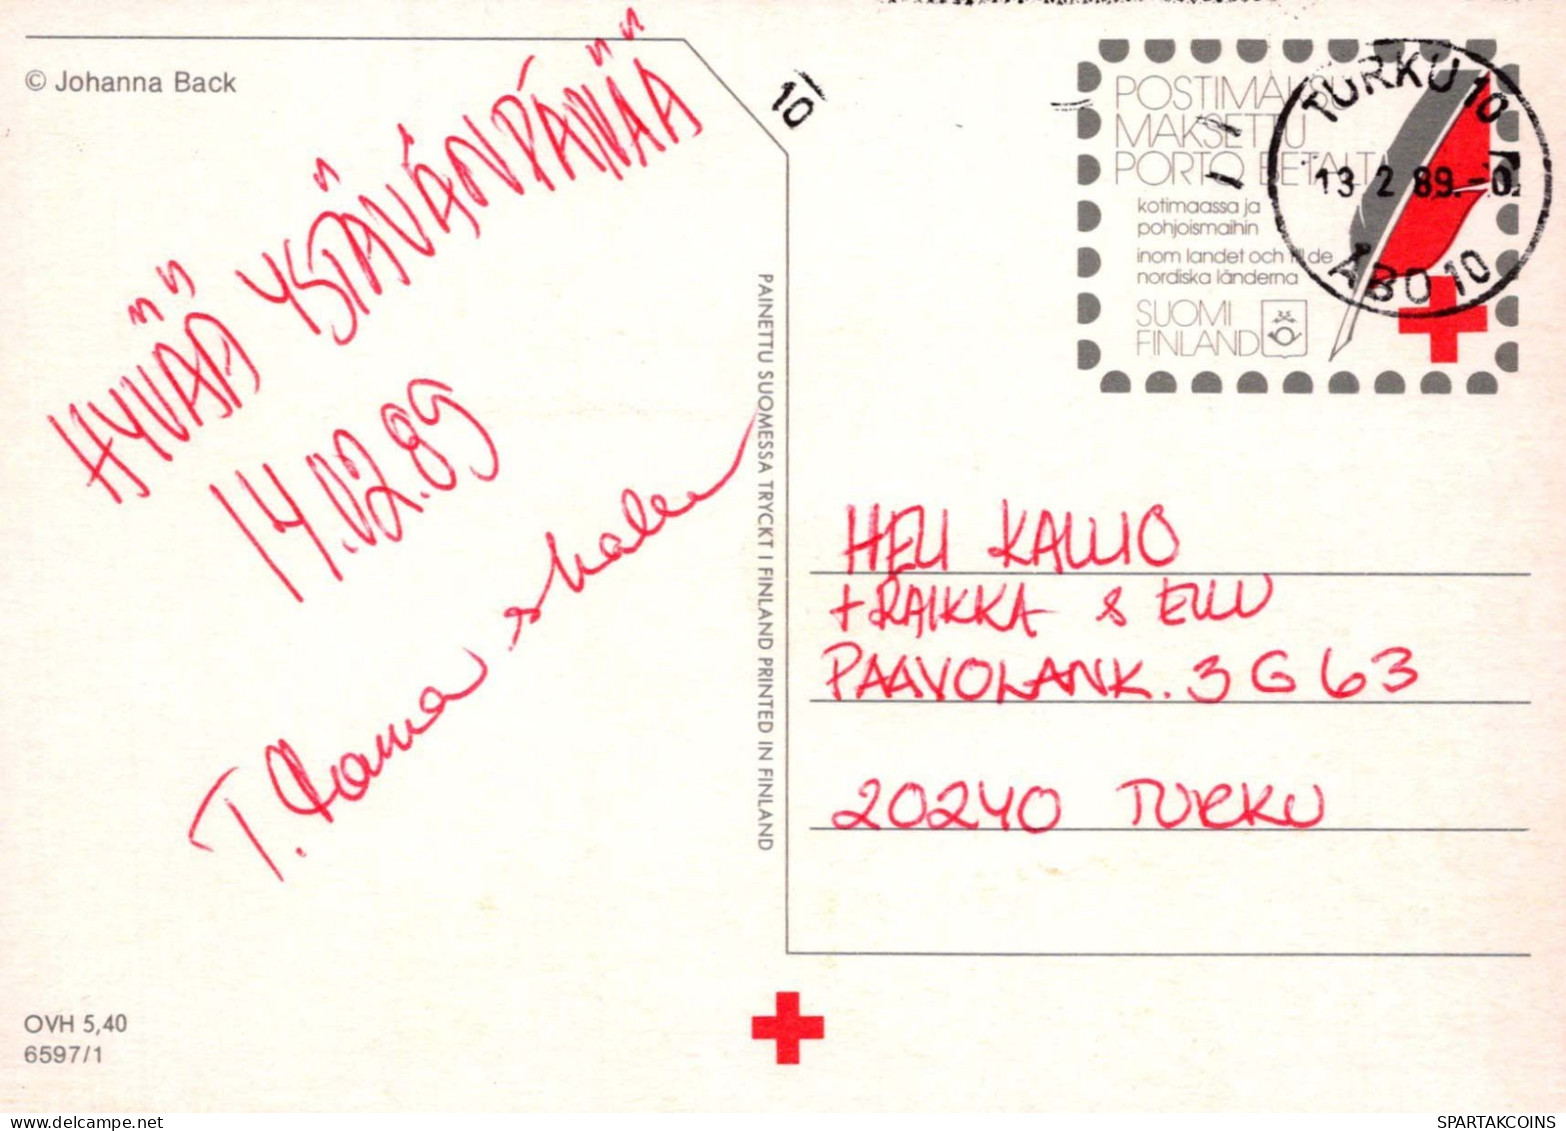 © Johanna Back
HYVÄÄ YSTÄVÄNPÄIVÄÄ
14.02.89
T.
OVH 5,40
6597/1
PAINETTU SUOMESSA TRYCKT I FINLAND PRINTED IN FINLAND
10
POSTIMAKSU
MAKSETTU
PORTO BETALT
kotimaassa ja
pohjoismaihin
inom landet och till de
nordiska länderna
SUOMI
FINLAND
TURKU 10
13 2 89.-0
ÅBO 10
HELI KALLIO
+ RAIKKA & ELLU
PAAVOLANK. 3 G 63
20240 TURKU
SPARTAKCOINS